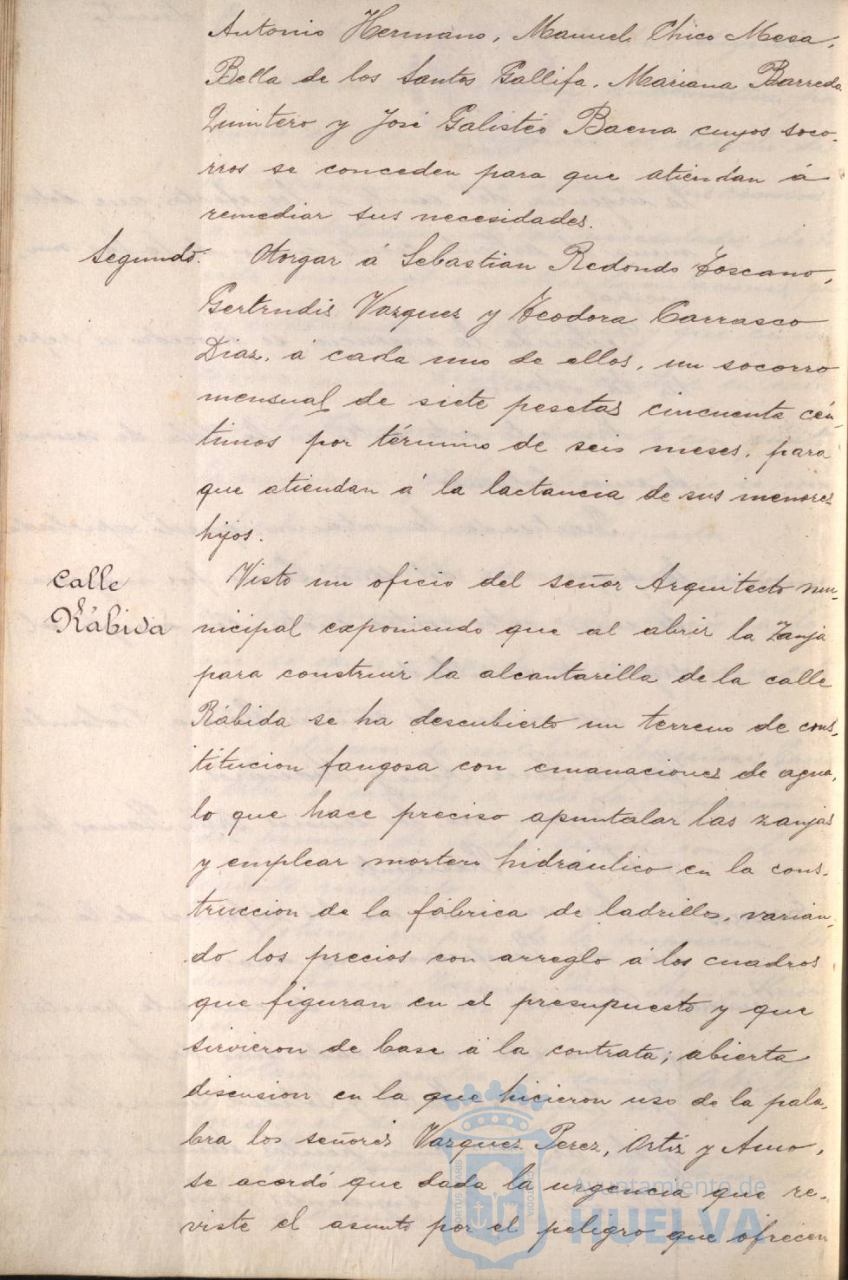 Antonio Hermano, Manuel Chico Mesa,
Bella de los Santos Gallifa, Mariana Barreda
Quintero y José Galistéo Baena cuyos soco-
rros se conceden para que atiendan á
remediar sus necesidades.
Segundo. Otorgar á Sebastian Redondo Toscano,
Gertrudis Vazquez y Teodora Carrasco
Diaz, á cada uno de ellos, un socorro
mensual de siete pesetas cincuenta cén-
timos por término de seis meses, para
que atiendan á la lactancia de sus menores
hijos.
Calle
Rábida
Visto un oficio del señor Arquitecto mu-
nicipal exponiendo que al abrir la zanja
para construir la alcantarilla de la calle
Rábida se ha descubierto un terreno de cons-
titucion fangosa con emanaciones de agua,
lo que hace preciso apuntalar las zanjas
y emplear mortero hidráulico en la cons-
truccion de la fábrica de ladrillos, varian-
do los precios con arreglo á los cuadros
que figuran en el presupuesto y que
sirvieron de base á la contrata; abierta
discusion en la que hicieron uso de la pala-
bra los señores Vazquez Perez, Ortiz y Amo,
se acordó que dada la urgencia que re-
viste el asunto por el peligro que ofrecen
Ayuntamiento de
HUELVA